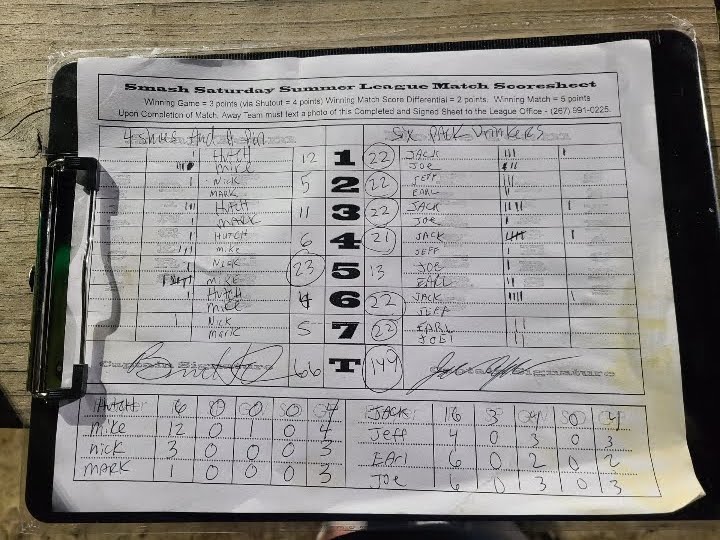 Smash Saturday Summer League Match Scoresheet
Winning Game = 3 points (via Shutout = 4 points) Winning Match Score Differential = 2 points. Winning Match = 5 points
Upon Completion of Match, Away Team must text a photo of this Completed and Signed Sheet to the League Office - (267) 991-0225.
SIX PACK DRINKERS
HUTCH 12 1 22 JACK
MIKE JOE
NICK 5 2 22 JEFF
MARK EARL
HUTCH 11 3 22 JACK
MARK JOE
HUTCH 6 4 21 JACK
MIKE JEFF
NICK 23 5 13 JOE
MIKE EARL
HUTCH 4 6 22 JACK
MIKE JEFF
NICK 5 7 22 EARL
MARK JOE
Captain Signature 66 T 149 Captain Signature
HUTCH 6 0 0 0 4 JACK 16 3 4 0 4
MIKE 12 0 1 0 4 Jeff 4 0 3 0 3
NICK 3 0 0 0 3 EArl 6 0 2 0 2
MARK 1 0 0 0 3 Joe 6 0 3 0 3